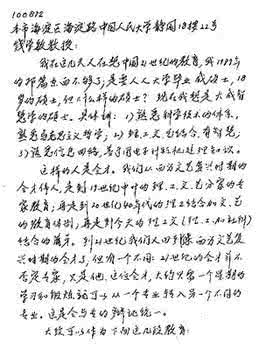 100872
本市海淀区海淀路中国人民大学静园18楼22号
钱学敏教授:
我在这几天人在想中国21世纪的教育,我1989年
的那篇东西不够了;是要人人大学毕业成硕士,18
岁的硕士,但什么样的硕士?现在我想是大成智
慧学的硕士。具体讲:1)熟悉科学技术的体系,
熟悉马克思主义哲学;2)理、工、文、艺结合,有智慧;
3)熟悉信息网络,善于用电子计算机处理知识。
这样的人是全才。我们从西方文艺复兴时期的
全才伟人,走到19世纪中叶的理、工、文、艺分家的专
家教育;再走到20世纪40年代的理工结合加文、艺
的教育体制;再走到今天的理工文(理工加社科)
结合的萌芽。到21世纪我们又回到像西方文艺复
兴时期的全才了,但有一个不同:21世纪的全才并不
否定专家,只是他,这位全才,大约只需一个星期的
学习和锻炼就可以从一个专业转入另一个不同的
专业。这是全与专的辩证统一。
大致可以作为下面这几段教育: